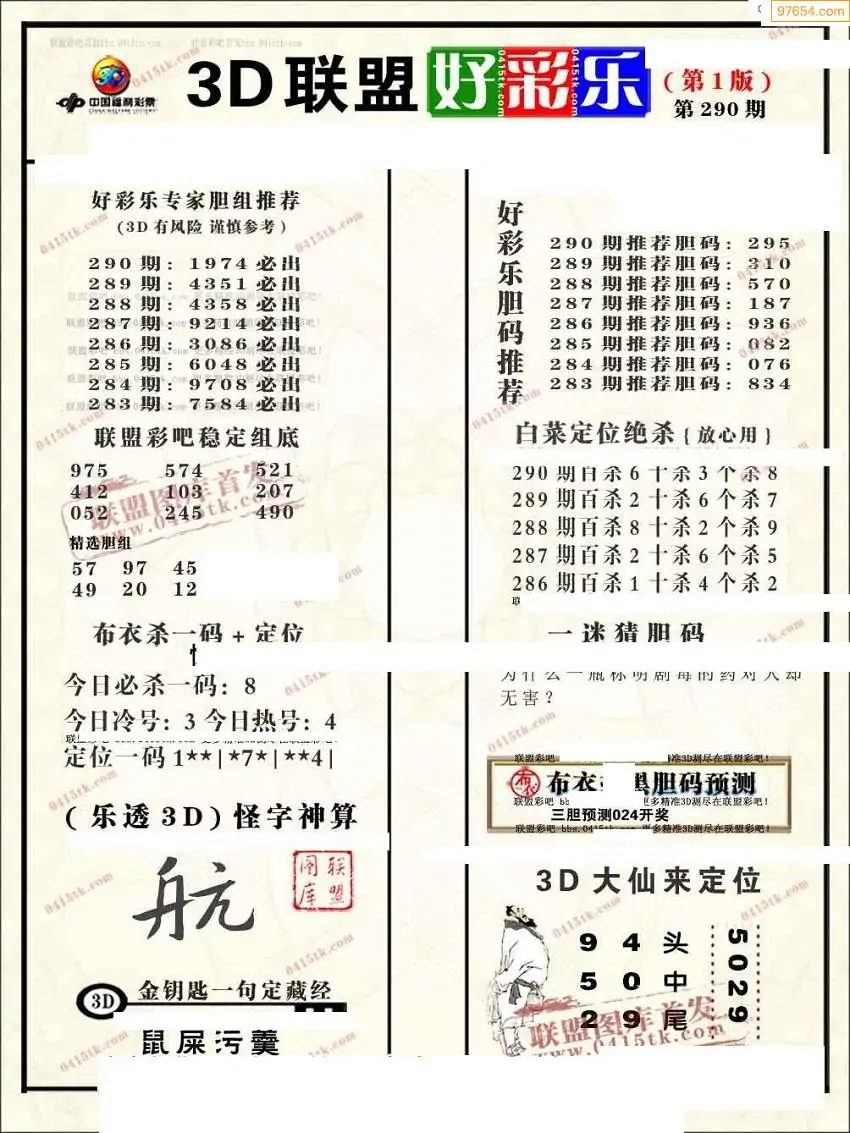 97654.com
3D联盟好彩乐
0415tk.com
(第1版)
第290期
中国福利彩票
CHINA WELFARE LOTTERY
好彩乐专家胆组推荐
(3D有风险 谨慎参考)
290期: 1974必出
289期: 4351必出
288期: 4358必出
287期: 9214必出
286期: 3086必出
285期: 6048必出
284期: 9708必出
283期: 7584必出
联盟彩吧稳定组底
975 574 521
412 103 207
052 245 490
联盟图库首发
www.0415tk.com
精选胆组
57 97 45
49 20 12
布衣杀一码+定位
今日必杀一码: 8
今日冷号: 3 今日热号: 4
定位一码 1**|*7*|**4|
(乐透3D)怪字神算
航
联盟图库
3D 金钥匙一句定藏经
鼠屎污羹
好彩乐胆码推荐
290期推荐胆码: 295
289期推荐胆码: 310
288期推荐胆码: 570
287期推荐胆码: 187
286期推荐胆码: 936
285期推荐胆码: 082
284期推荐胆码: 076
283期推荐胆码: 834
白菜定位绝杀{放心用}
290期百杀6十杀3个杀8
289期百杀2十杀6个杀7
288期百杀8十杀2个杀9
287期百杀2十杀6个杀5
286期百杀1十杀4个杀2
一迷猜胆码
为什么一瓶标明剧毒的药对人却
无害?
布衣 胆码预测
三胆预测024开奖
联盟彩吧 bbs.0415tk.com 更多精准3D测尽在联盟彩吧!
3D大仙来定位
9 4 头
5 0 中
2 9 尾
5029
联盟图库首发
www.0415tk.com